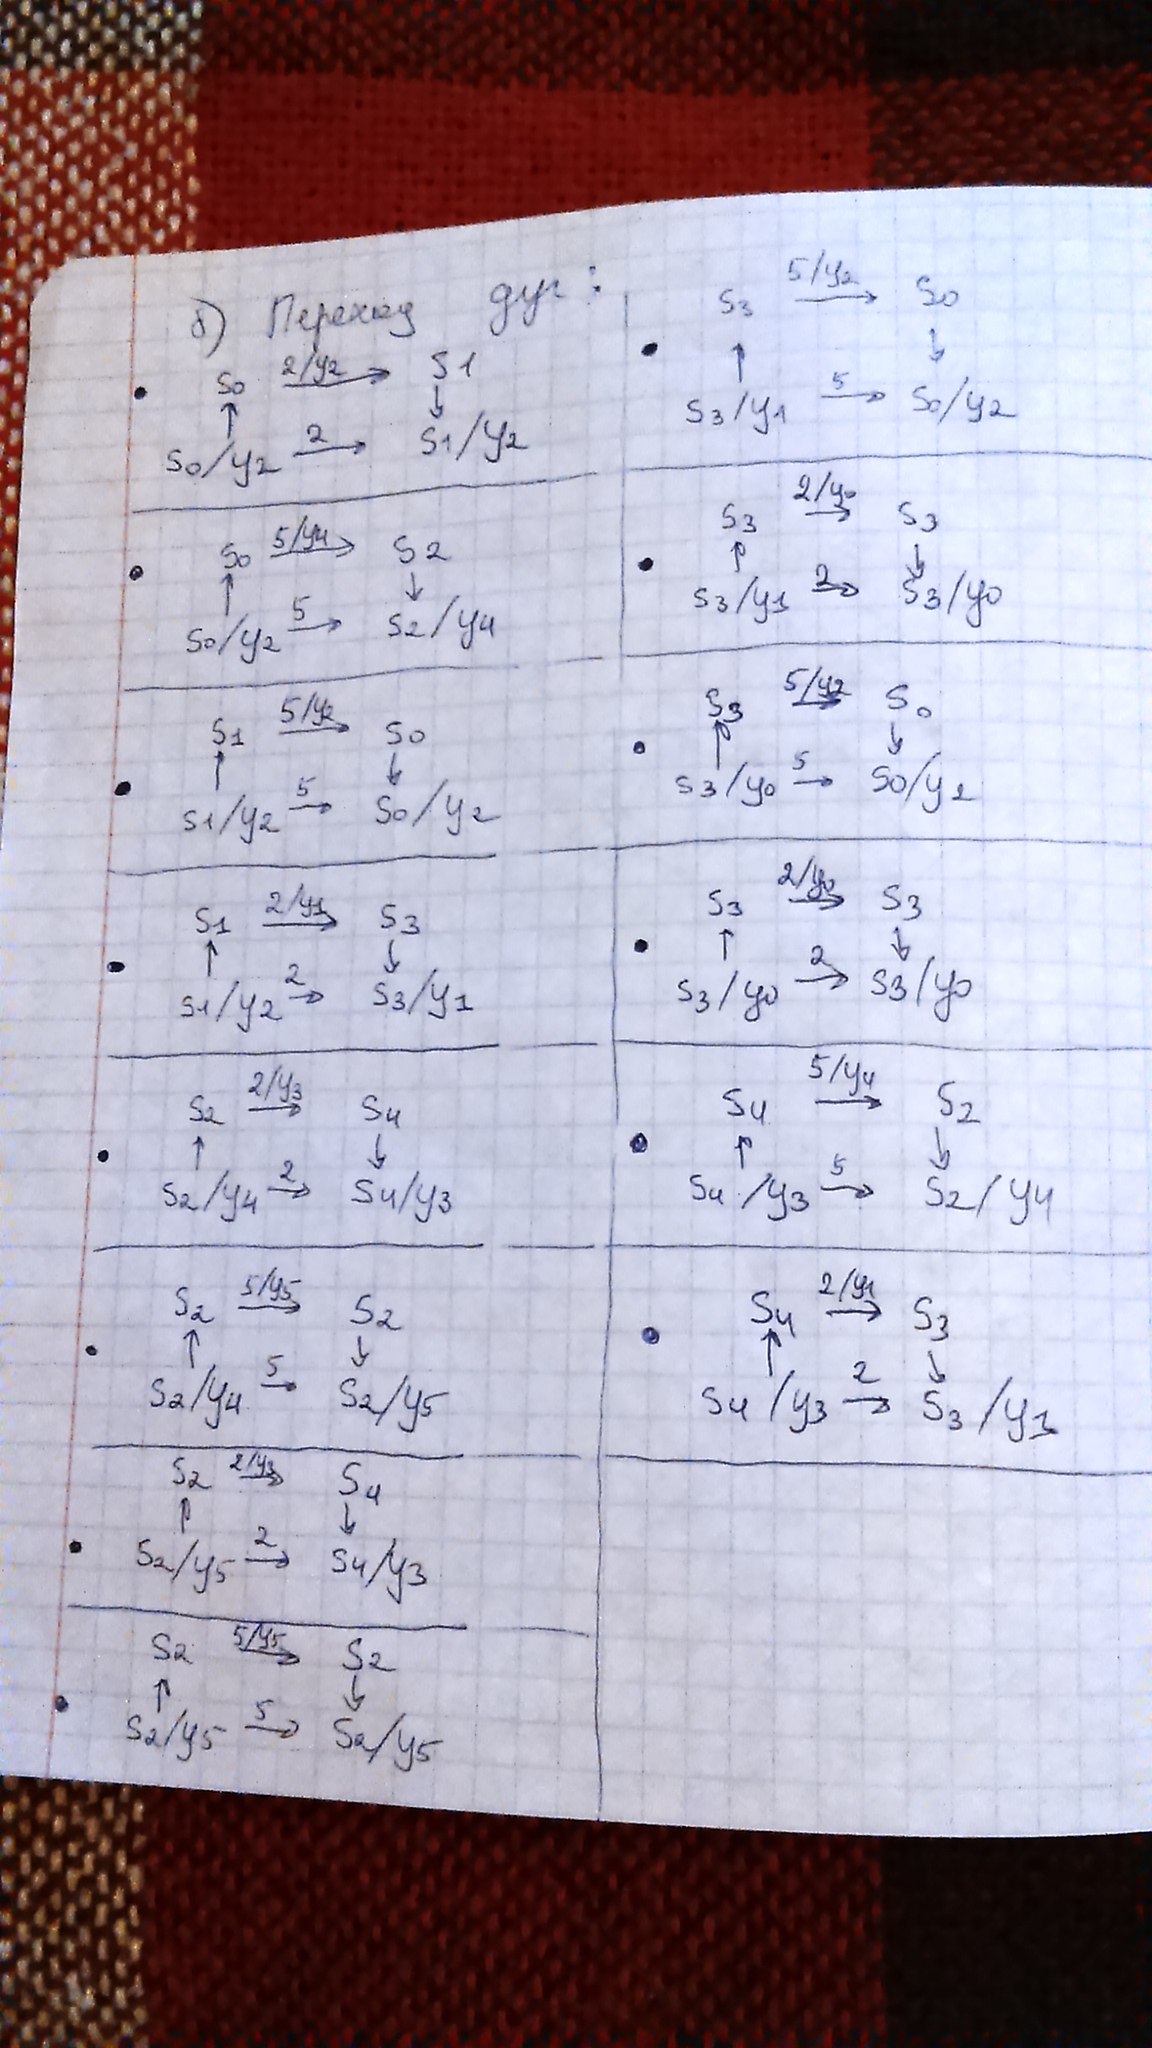 б) Переход дуг:
S0 2/y2 → S1
↑ ↓
S0/y2 2 → S1/y2
S0 5/y4 → S2
↑ ↓
S0/y2 5 → S2/y4
S1 5/y2 → S0
↑ ↓
S1/y2 5 → S0/y2
S1 2/y1 → S3
↑ ↓
S1/y2 2 → S3/y1
S2 2/y3 → S4
↑ ↓
S2/y4 2 → S4/y3
S2 5/y5 → S2
↑ ↓
S2/y4 5 → S2/y5
S2 2/y3 → S4
↑ ↓
S2/y5 2 → S4/y3
S2 5/y5 → S2
↑ ↓
S2/y5 5 → S2/y5
S3 5/y2 → S0
↑ ↓
S3/y1 5 → S0/y2
S3 2/y0 → S3
↑ ↓
S3/y1 2 → S3/y0
S3 5/y2 → S0
↑ ↓
S3/y0 5 → S0/y2
S3 2/y0 → S3
↑ ↓
S3/y0 2 → S3/y0
S4 5/y4 → S2
↑ ↓
S4/y3 5 → S2/y4
S4 2/y1 → S3
↑ ↓
S4/y3 2 → S3/y1